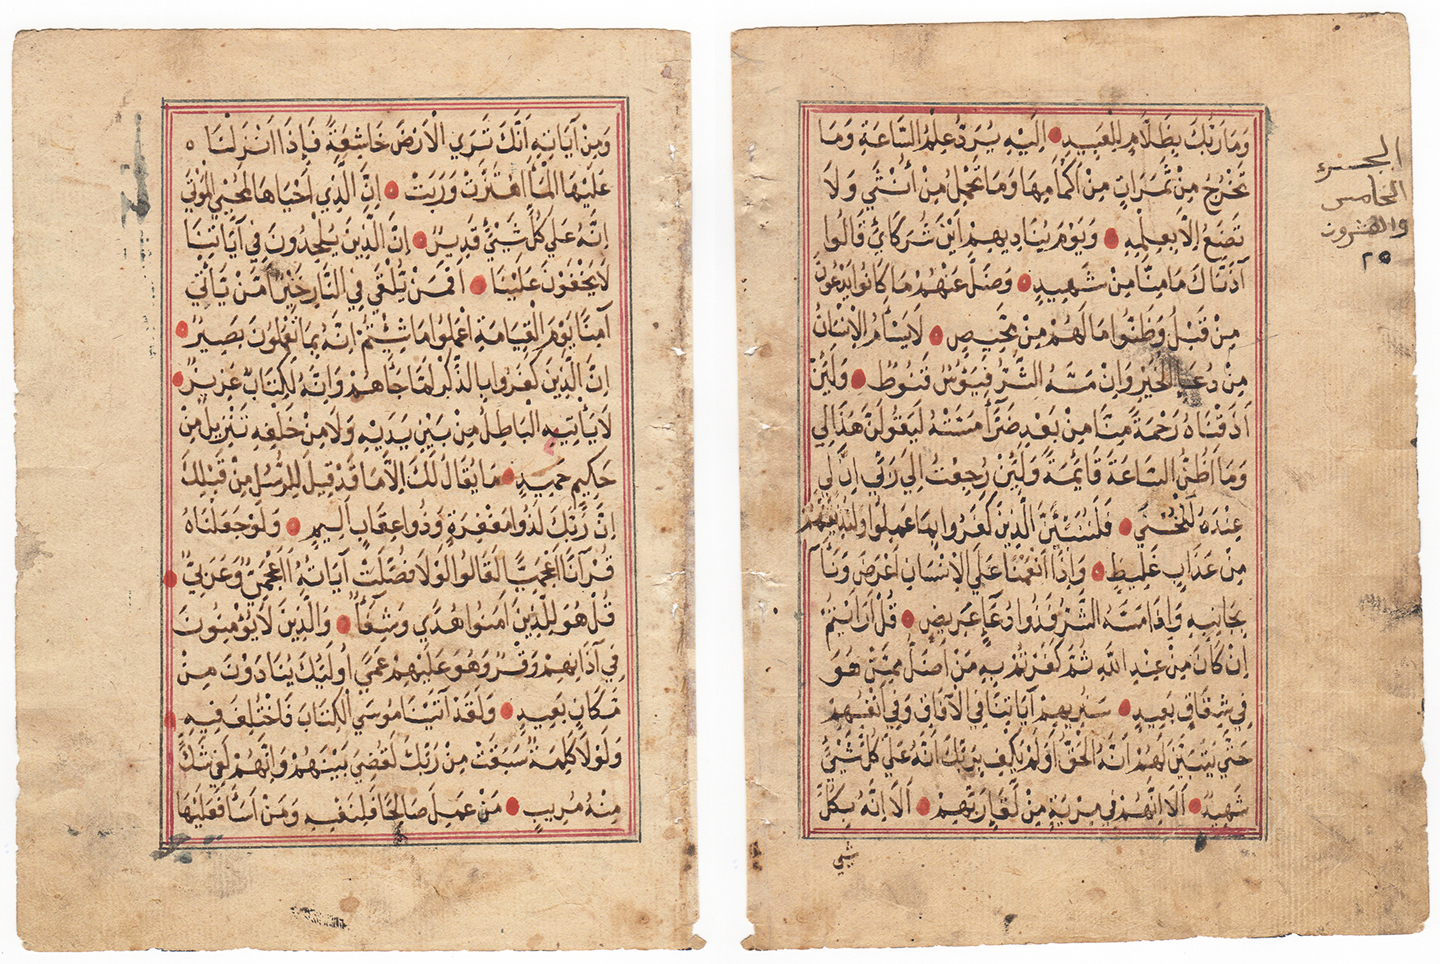 وَمِنْ آيَاتِهِ اَنَّكَ تَرَي الْاَرْضَ خَاشِعَةً فَاِذَا اَنْزَلْنَا
عَلَيْهَا الْمَاۤءَ اهْتَزَّتْ وَرَبَتْ اِنَّ الَّذِي اَحْيَاهَا لَمُحْيِي الْمَوْتَي
اِنَّهُ عَلَي كُلِّ شَيْئٍ قَدِيرٌ اِنَّ الَّذِينَ يُلْحِدُونَ فِي آيَاتِنَا
لَا يَخْفَوْنَ عَلَيْنَا اَفَمَنْ يُلْقَي فِي النَّارِ خَيْرٌ اَمْ مَنْ يَاْتِي
آمِنًا يَوْمَ الْقِيَامَةِ اعْمَلُوا مَا شِئْتُمْ اِنَّهُ بِمَا تَعْمَلُونَ بَصِيرٌ
اِنَّ الَّذِينَ كَفَرُوا بِالذِّكْرِ لَمَّا جَاۤءَهُمْ وَاِنَّهُ لَكِتَابٌ عَزِيزٌ
لَا يَأْتِيهِ الْبَاطِلُ مِنْ بَيْنِ يَدَيْهِ وَلَا مِنْ خَلْفِهِ تَنْزِيلٌ مِنْ
حَكِيمٍ حَمِيدٍ مَا يُقَالُ لَكَ اِلَّا مَا قَدْ قِيلَ لِلرُّسُلِ مِنْ قَبْلِكَ
اِنَّ رَبَّكَ لَذُوا مَغْفِرَةٍ وَذُوا عِقَابٍ اَلِيمٍ وَلَوْ جَعَلْنَاهُ
قُرْآنًا اَعْجَمِيًّا لَقَالُوا لَوْلَا فُصِّلَتْ آيَاتُهُ اَاَعْجَمِيٌّ وَعَرَبِيٌّ
قُلْ هُوَ لِلَّذِينَ اٰمَنُوا هُدًي وَشِفَاۤءٌ وَالَّذِينَ لَا يُؤْمِنُونَ
فِي آذَانِهِمْ وَقْرٌ وَهُوَ عَلَيْهِمْ عَمًي اُولٰئِكَ يُنَادَوْنَ مِنْ
مَكَانٍ بَعِيدٍ وَلَقَدْ آتَيْنَا مُوسَي الْكِتَابَ فَاخْتُلِفَ فِيهِ
وَلَوْلَا كَلِمَةٌ سَبَقَتْ مِنْ رَبِّكَ لَقُضِيَ بَيْنَهُمْ وَاِنَّهُمْ لَفِي شَكٍّ
مِنْهُ مُرِيبٍ مَنْ عَمِلَ صَالِحًا فَلِنَفْسِهِ وَمَنْ اَسَاۤءَ فَعَلَيْهَا
وَمَا رَبُّكَ بِظَلَّامٍ لِلْعَبِيدِ اِلَيْهِ يُرَدُّ عِلْمُ السَّاعَةِ وَمَا
تَخْرُجُ مِنْ ثَمَرَاتٍ مِنْ اَكْمَامِهَا وَمَا تَحْمِلُ مِنْ اُنْثَي وَلَا
تَضَعُ اِلَّا بِعِلْمِهِ وَيَوْمَ يُنَادِيهِمْ اَيْنَ شُرَكَائِي قَالُوا
آذَنَّاكَ مَا مِنَّا مِنْ شَهِيدٍ وَضَلَّ عَنْهُمْ مَا كَانُوا يَدْعُونَ
مِنْ قَبْلُ وَظَنُّوا مَا لَهُمْ مِنْ مَحِيصٍ لَا يَسْاَمُ الْاِنْسَانُ
مِنْ دُعَاۤءِ الْخَيْرِ وَاِنْ مَسَّهُ الشَّرُّ فَيَؤُسٌ قَنُوطٌ وَلَئِنْ
اَذَقْنَاهُ رَحْمَةً مِنَّا مِنْ بَعْدِ ضَرَّاۤءَ مَسَّتْهُ لَيَقُولَنَّ هَذَا لِي
وَمَا اَظُنُّ السَّاعَةَ قَائِمَةً وَلَئِنْ رُجِعْتُ اِلَي رَبِّي اِنَّ لِي
عِنْدَهُ لَلْحُسْنَي فَلَنُنَبِّئَنَّ الَّذِينَ كَفَرُوا بِمَا عَمِلُوا وَلَنُذِيقَنَّهُمْ
مِنْ عَذَابٍ غَلِيظٍ وَاِذَا اَنْعَمْنَا عَلَي الْاِنْسَانِ اَعْرَضَ وَنَآ
بِجَانِبِهِ وَاِذَا مَسَّهُ الشَّرُّ فَذُوا دُعَاۤءٍ عَرِيضٍ قُلْ اَرَاَيْتُمْ
اِنْ كَانَ مِنْ عِنْدِ اللّٰهِ ثُمَّ كَفَرْتُمْ بِهِ مَنْ اَضَلُّ مِمَّنْ هُوَ
فِي شِقَاقٍ بَعِيدٍ سَنُرِيهِمْ آيَاتِنَا فِي الْآفَاقِ وَفِي اَنْفُسِهِمْ
حَتَّي يَتَبَيَّنَ لَهُمْ اَنَّهُ الْحَقُّ اَوَلَمْ يَكْفِ بِرَبِّكَ اَنَّهُ عَلَي كُلِّ شَيْئٍ
شَهِيدٌ اَلَا اِنَّهُمْ فِي مِرْيَةٍ مِنْ لِقَاۤءِ رَبِّهِمْ اَلَا اِنَّهُ بِكُلِّ
شي
الجزء
الخامس
والعشرون
٢٥